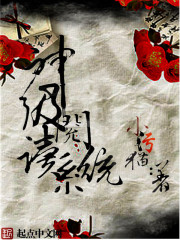 神级阅读系统
小号猫 著
起点中文网